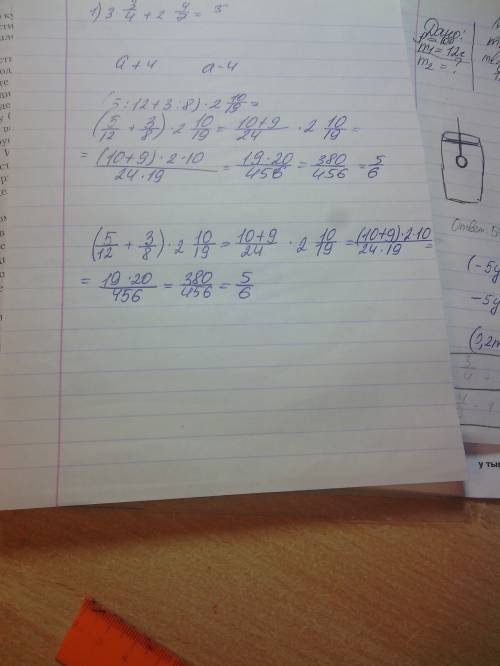 1) 3 3/4 + 2 4/7 = 5
a + 4    a - 4
5:12+3:8)·2 10/19 =
(5/12 + 3/8) · 2 10/19 = 10+9/24 · 2 10/19 =
= (10+9)·2·10/24·19 = 19·20/456 = 380/456 = 5/6
(5/12 + 3/8) · 2 10/19 = 10+9/24 · 2 10/19 = (10+9)·2·10/24·19 =
= 19·20/456 = 380/456 = 5/6
Дано:
m₂ = ?
Ответ: 5
(-5y
-5y
(0,2m
3/4
у тым